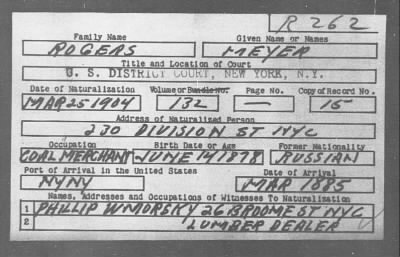 R 262
Family Name Given Name or Names
ROGERS MEYER
Title and Location of Court
U. S. DISTRICT COURT, NEW YORK, N.Y.
Date of Naturalization Volume or Bundle No. Page No. Copy of Record No.
MAR 25 1904 132 — 15
Address of Naturalized Person
230 DIVISION ST NYC
Occupation Birth Date or Age Former Nationality
COAL MERCHANT JUNE 14 1878 RUSSIAN
Port of Arrival in the United States Date of Arrival
NYNY MAR 1885
Names, Addresses and Occupations of Witnesses To Naturalization
1 PHILLIP WMORSKY 26 BROOME ST NYC
2 LUMBER DEALER